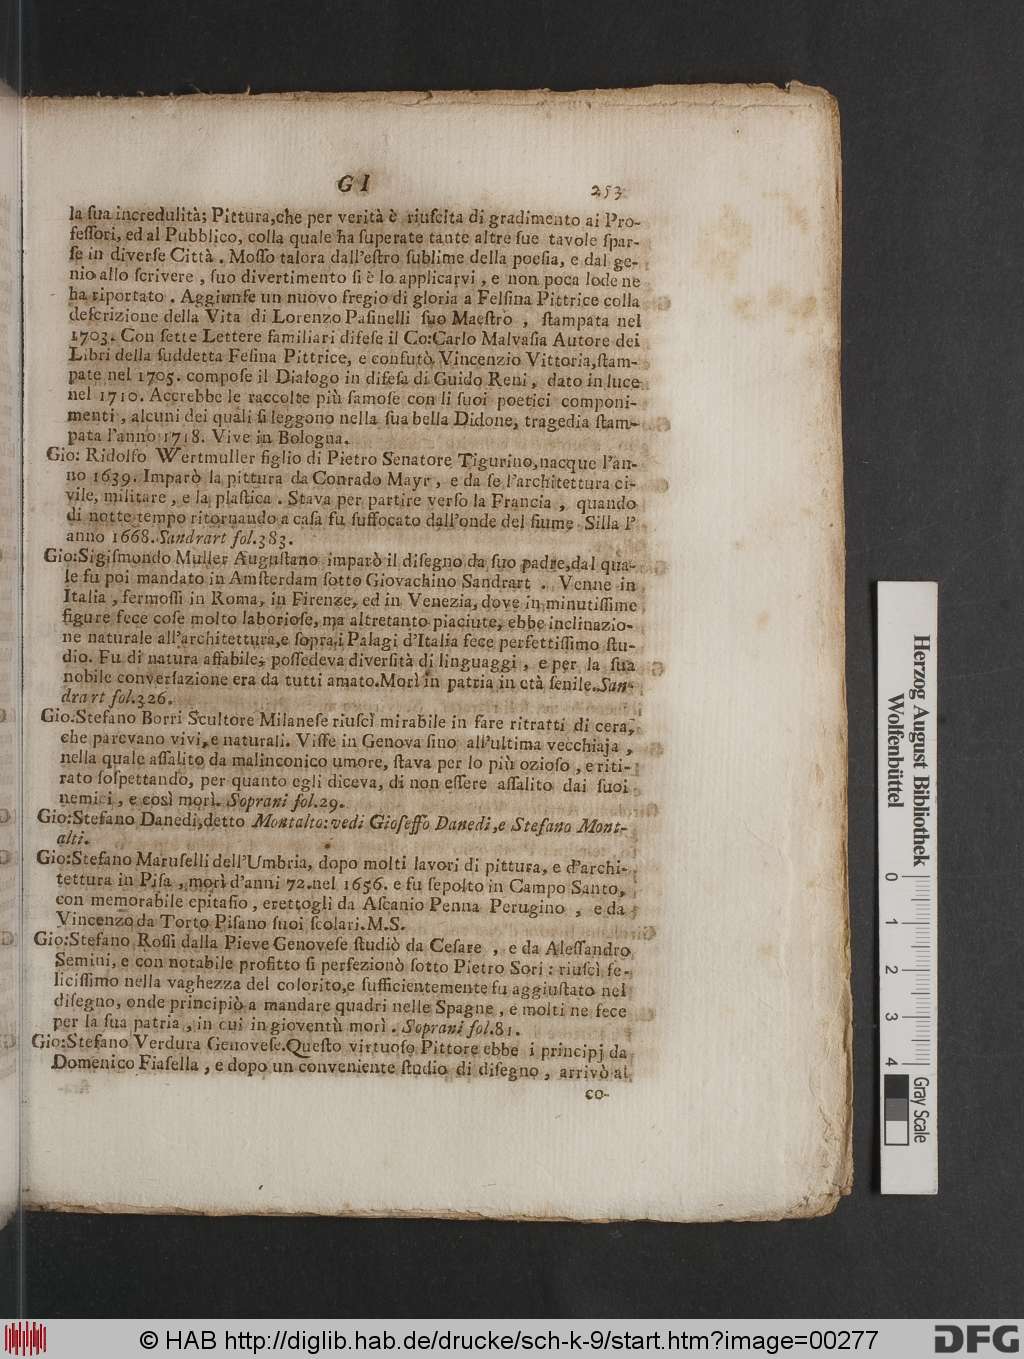 G I 253
la ſua incredulità; Pittura,che per verità è riuſcita di gradimento ai Pro-
feſſori, ed al Pubblico, colla quale ha ſuperate tante altre ſue tavole ſpar-
ſe in diverſe Città . Moſſo talora dall'eſtro ſublime della poeſia, e dal ge-
nio allo ſcrivere , ſuo divertimento ſi è lo applicarvi , e non poca lode ne
ha riportato . Aggiunſe un nuovo fregio di gloria a Felſina Pittrice colla
deſcrizione della Vita di Lorenzo Paſinelli ſuo Maeſtro , ſtampata nel
1703. Con ſette Lettere familiari difeſe il Co:Carlo Malvaſia Autore dei
Libri della ſuddetta Feſina Pittrice, e confutò Vincenzio Vittoria,ſtam-
pate nel 1705. compoſe il Dialogo in difeſa di Guido Reni , dato in luce
nel 1710. Accrebbe le raccolte più famoſe con li ſuoi poetici componi-
menti , alcuni dei quali ſi leggono nella ſua bella Didone, tragedia ſtam-
pata l'anno 1718. Vive in Bologna.
Gio: Ridolfo Wertmuller figlio di Pietro Senatore Tigurino,nacque l'an-
no 1639. Imparò la pittura da Conrado Mayr , e da ſe l'architettura ci-
vile, militare , e la plaſtica . Stava per partire verſo la Francia , quando
di notte tempo ritornando a caſa fu ſuffocato dall'onde del fiume Silla l'
anno 1668. Sandrart fol.383.
Gio:Sigiſmondo Muller Auguſtano imparò il diſegno da ſuo padre,dal qua-
le fu poi mandato in Amſterdam ſotto Giovachino Sandrart . Venne in
Italia , fermoſſi in Roma, in Firenze, ed in Venezia, dove in minutiſſime
figure fece coſe molto laborioſe, ma altretanto piaciute, ebbe inclinazio-
ne naturale all'architettura,e ſopra i Palagi d'Italia fece perfettiſſimo ſtu-
dio. Fu di natura affabile; poſſedeva diverſità di linguaggi , e per la ſua
nobile converſazione era da tutti amato.Morì in patria in età ſenile.San-
drart fol.326.
Gio:Stefano Borri Scultore Milaneſe riuſcì mirabile in fare ritratti di cera,
che parevano vivi, e naturali. Viſſe in Genova ſino all'ultima vecchiaja ,
nella quale aſſalito da malinconico umore, ſtava per lo più ozioſo , e riti-
rato ſoſpettando, per quanto egli diceva, di non eſſere aſſalito dai ſuoi
nemici , e così morì. Soprani fol.29.
Gio:Stefano Danedi,detto Montalto: vedi Gioſeffo Danedi,e Stefano Mont-
alti.
Gio:Stefano Maruſelli dell'Umbria, dopo molti lavori di pittura, e d'archi-
tettura in Piſa , morì d'anni 72.nel 1656. e fu ſepolto in Campo Santo,
con memorabile epitafio , erettogli da Aſcanio Penna Perugino , e da
Vincenzo da Torto Piſano ſuoi ſcolari.M.S.
Gio:Stefano Roſſi dalla Pieve Genoveſe ſtudiò da Ceſare , e da Aleſſandro
Semini, e con notabile profitto ſi perfezionò ſotto Pietro Sori : riuſcì fe-
liciſſimo nella vaghezza del colorito,e ſufficientemente fu aggiuſtato nel
diſegno, onde principiò a mandare quadri nelle Spagne , e molti ne fece
per la ſua patria , in cui in gioventù morì . Soprani fol.81.
Gio:Stefano Verdura Genoveſe.Queſto virtuoſo Pittore ebbe i principj da
Domenico Fiaſella , e dopo un conveniente ſtudio di diſegno , arrivò al
co-
Herzog August Bibliothek
Wolfenbüttel
0 1 2 3 4
Gray Scale
© HAB http://diglib.hab.de/drucke/sch-k-9/start.htm?image=00277
DFG